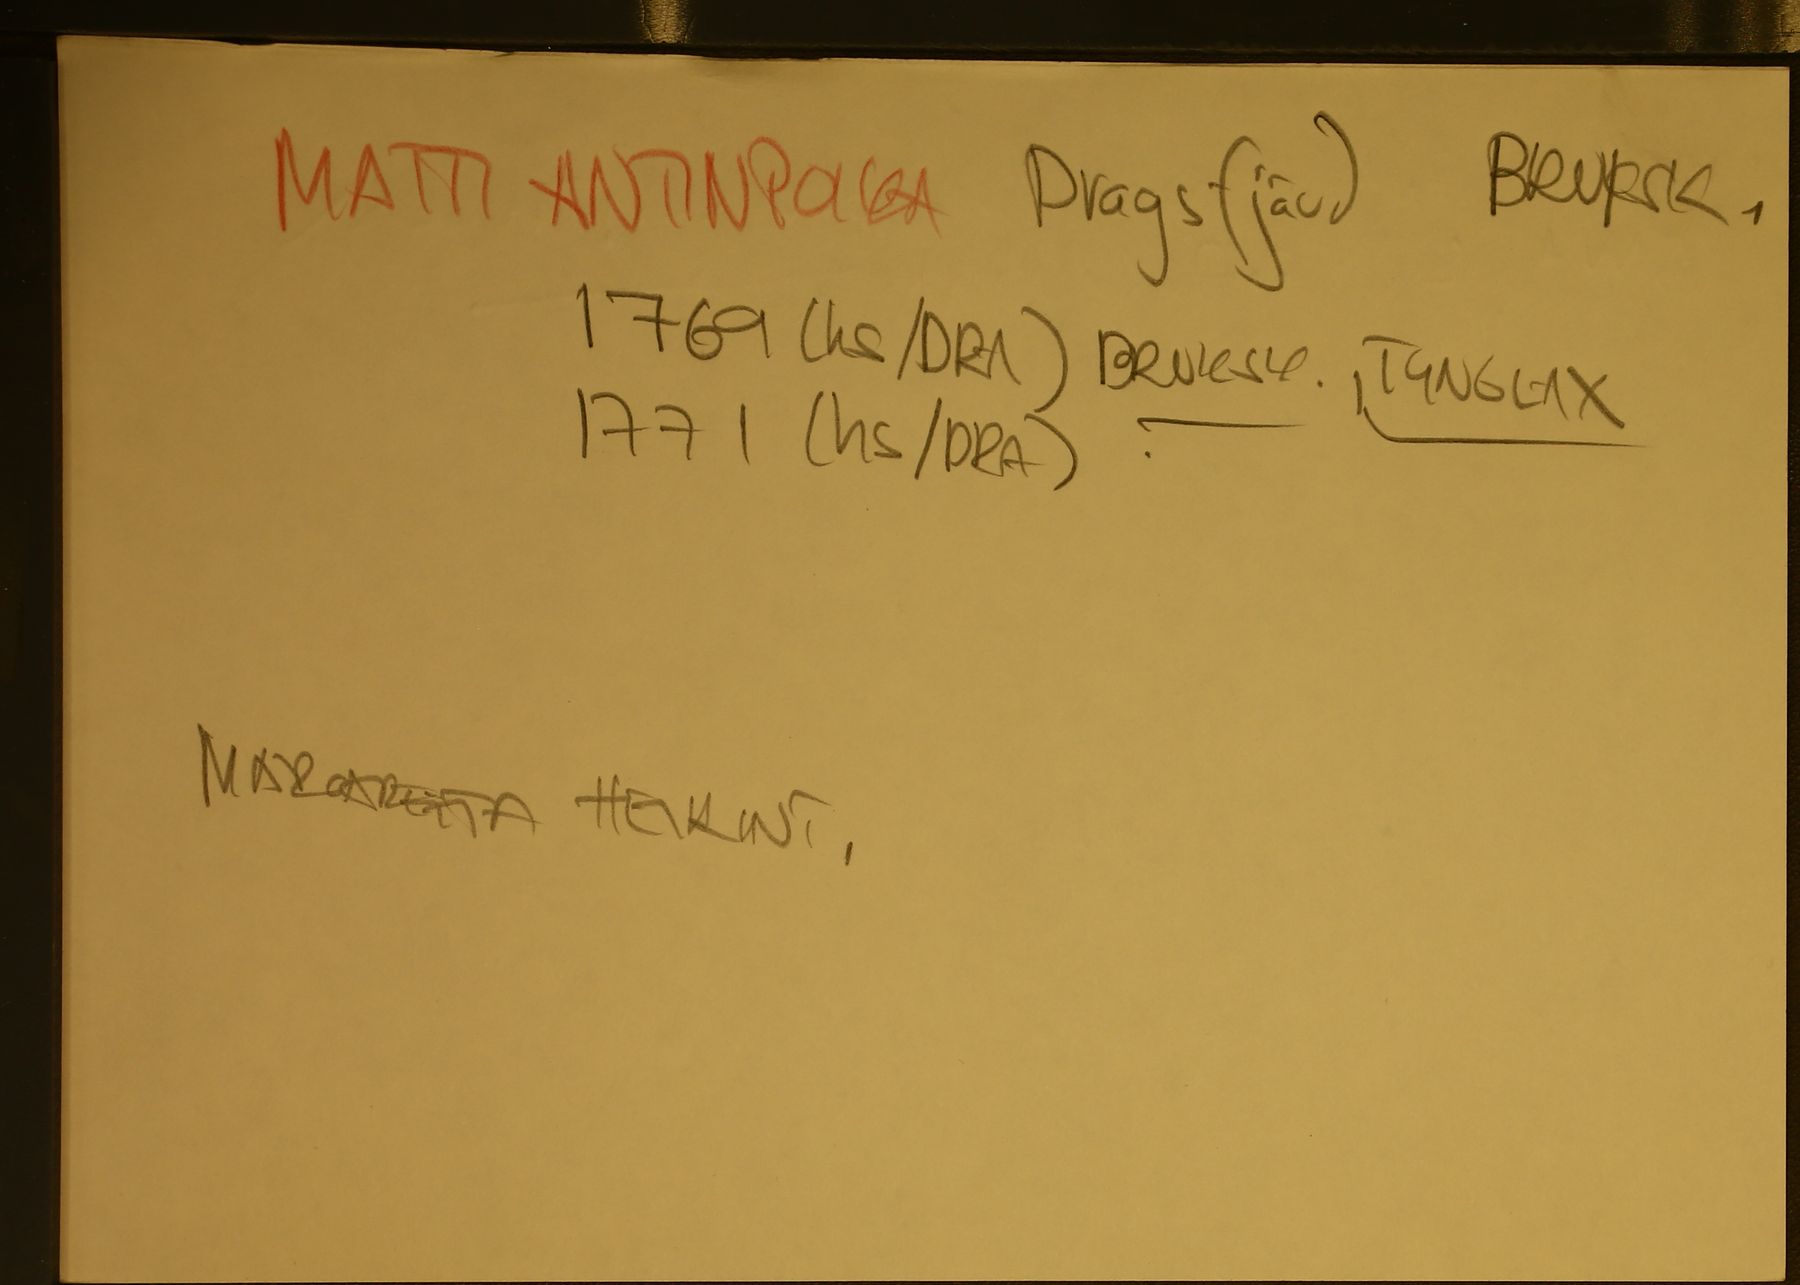 MATTI ANTINPOIKA Dragsfjärd BRUKSK.,
1769 (hs/DRA) BRUKSK., TYNGLAX
1771 (hs/DRA)
MARGAREETTA HEIKINT.,